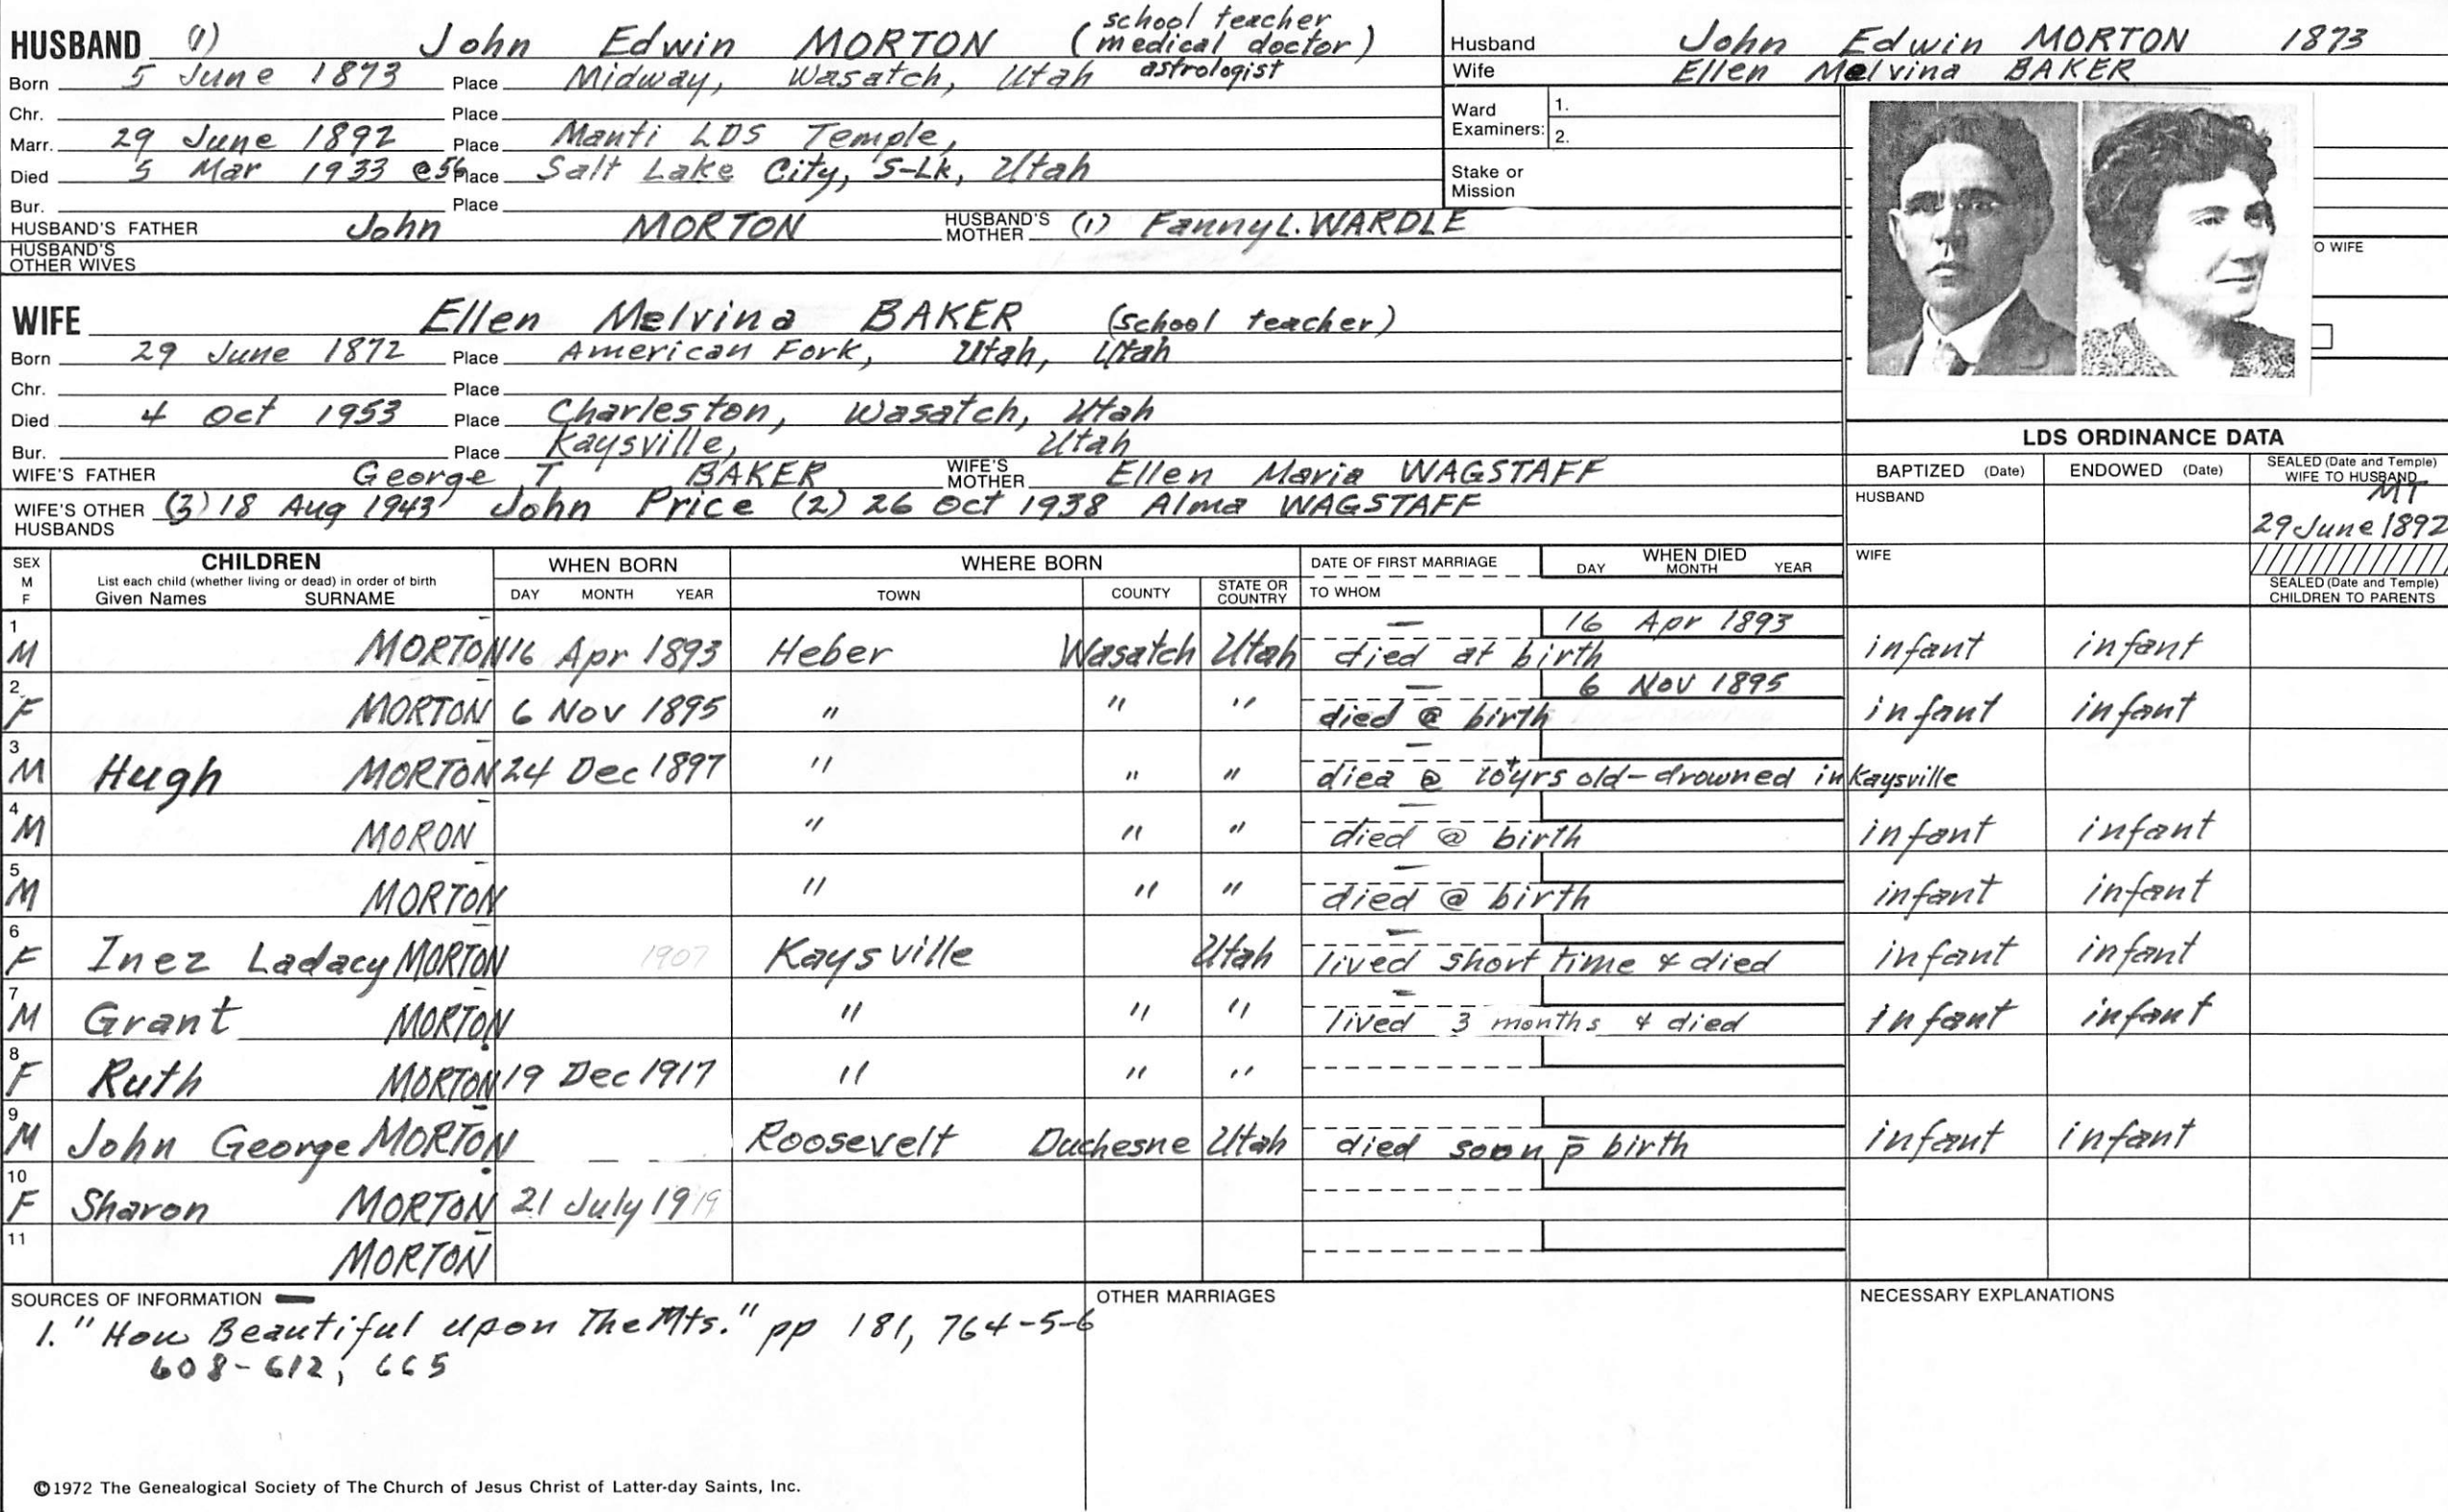 school teacher
HUSBAND (1) John Edwin MORTON (medical doctor)
astrologist
Born 5 June 1873 Place Midway, Wasatch, Utah
Chr. Place
Marr. 29 June 1892 Place Manti LDS Temple,
Died 5 Mar 1933 @56 Place Salt Lake City, S-Lk, Utah
Bur. Place
HUSBAND'S FATHER John MORTON HUSBAND'S MOTHER (1) Fanny L. WARDLE
HUSBAND'S OTHER WIVES
Husband John Edwin MORTON 1873
Wife Ellen Melvina BAKER
Ward Examiners: 1.
2.
Stake or Mission
O WIFE
WIFE Ellen Melvina BAKER (school teacher)
Born 29 June 1872 Place American Fork, Utah, Utah
Chr. Place
Died 4 Oct 1953 Place Charleston, Wasatch, Utah
Bur. Place Kaysville, Utah
WIFE'S FATHER George T BAKER WIFE'S MOTHER Ellen Maria WAGSTAFF
WIFE'S OTHER HUSBANDS (3) 18 Aug 1943 John Price (2) 26 Oct 1938 Alma WAGSTAFF
LDS ORDINANCE DATA
BAPTIZED (Date) ENDOWED (Date) SEALED (Date and Temple) WIFE TO HUSBAND
HUSBAND MT
29 June 1892
WIFE
SEALED (Date and Temple) CHILDREN TO PARENTS
SEX M F CHILDREN WHEN BORN WHERE BORN DATE OF FIRST MARRIAGE WHEN DIED
List each child (whether living or dead) in order of birth
Given Names SURNAME DAY MONTH YEAR TOWN COUNTY STATE OR COUNTRY TO WHOM DAY MONTH YEAR
1 M MORTON 16 Apr 1893 Heber Wasatch Utah – died at birth 16 Apr 1893 infant infant
2 F MORTON 6 Nov 1895 " " " – died @ birth 6 Nov 1895 infant infant
3 M Hugh MORTON 24 Dec 1897 " " " – died @ 10+yrs old - drowned in Kaysville
4 M MORON " " " – died @ birth infant infant
5 M MORTON " " " – died @ birth infant infant
6 F Inez Ladacy MORTON 1907 Kaysville Utah – lived short time & died infant infant
7 M Grant MORTON " " " – lived 3 months & died infant infant
8 F Ruth MORTON 19 Dec 1917 " " "
9 M John George MORTON Roosevelt Duchesne Utah died soon p̄ birth infant infant
10 F Sharon MORTON 21 July 1919
11 MORTON
SOURCES OF INFORMATION
1. "How Beautiful upon The Mts." pp 181, 764-5-6
608-612, 665
OTHER MARRIAGES
NECESSARY EXPLANATIONS
©1972 The Genealogical Society of The Church of Jesus Christ of Latter-day Saints, Inc.